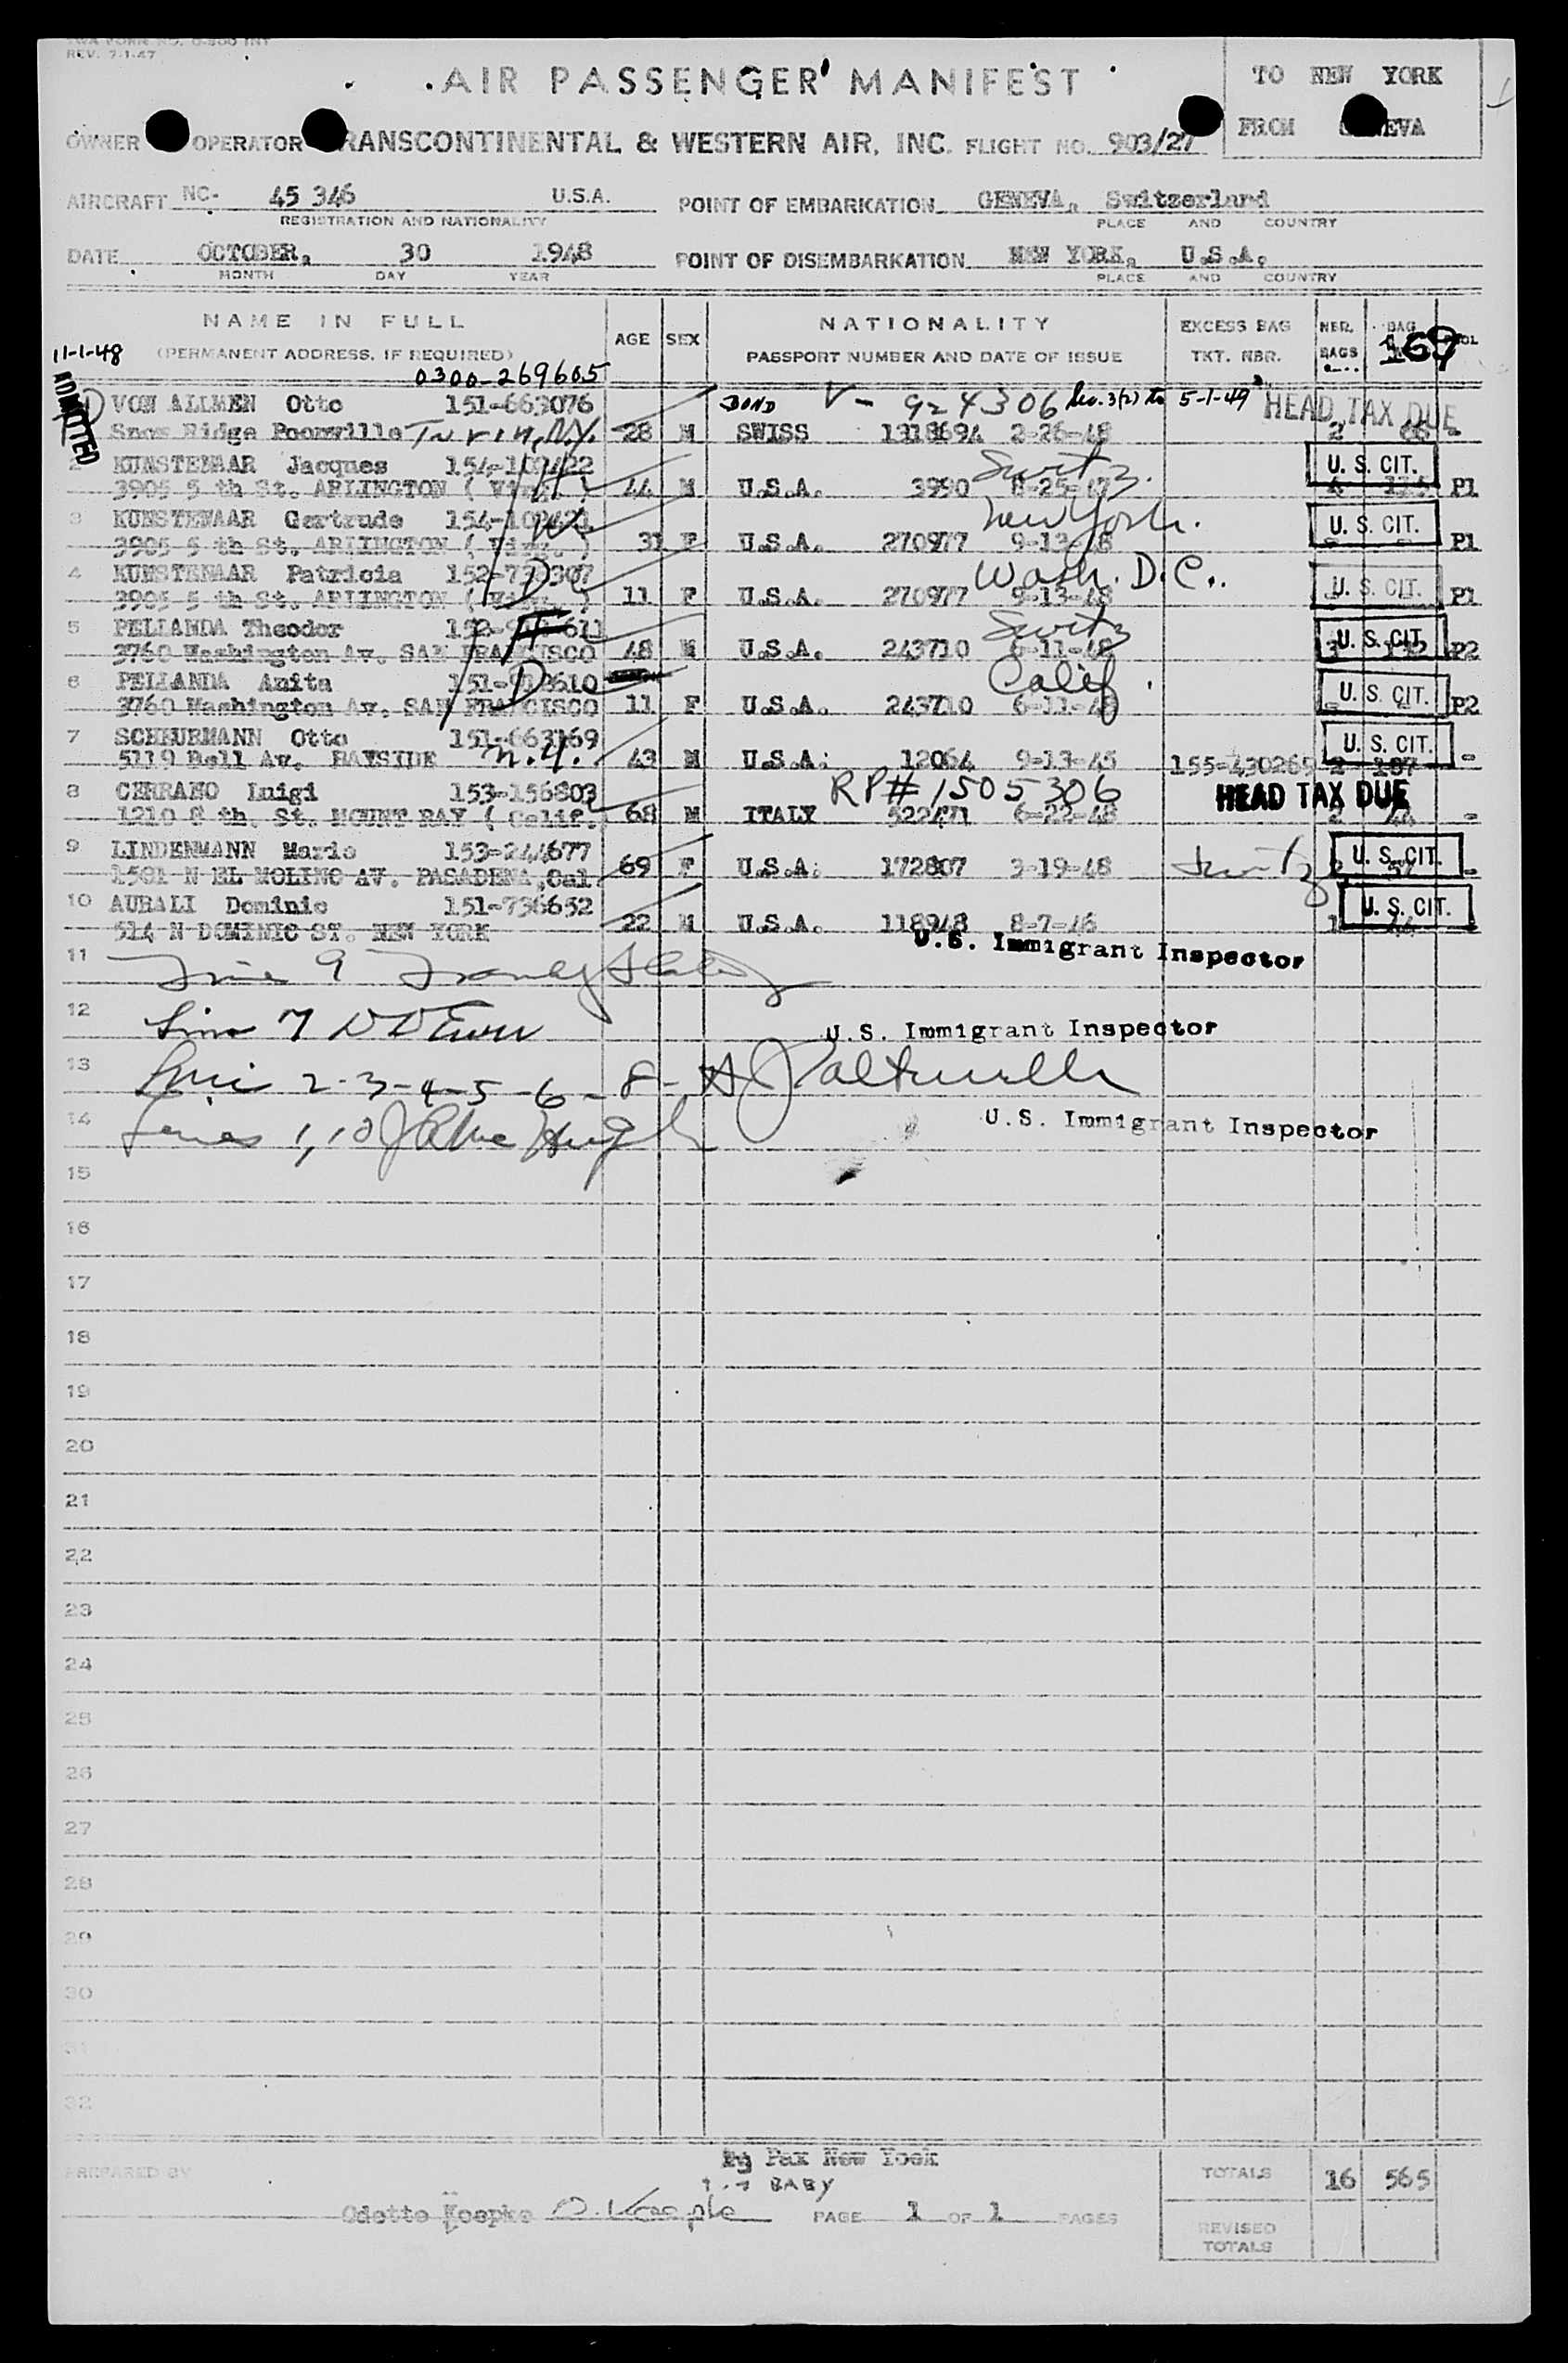 REV. 7-1-47
AIR PASSENGER MANIFEST
TO NEW YORK
FROM GENEVA
OWNER OPERATOR TRANSCONTINENTAL & WESTERN AIR, INC. FLIGHT NO. 903/27
AIRCRAFT NC- 45 346 U.S.A. POINT OF EMBARKATION GENEVA, Switzerland
REGISTRATION AND NATIONALITY PLACE AND COUNTRY
DATE OCTOBER, 30 1948 POINT OF DISEMBARKATION NEW YORK, U.S.A.
MONTH DAY YEAR PLACE AND COUNTRY
NAME IN FULL AGE SEX NATIONALITY EXCESS BAG NBR. BAG
11-1-48 (PERMANENT ADDRESS, IF REQUIRED) PASSPORT NUMBER AND DATE OF ISSUE TKT. NBR. BAGS 169
0300-269605
ADMITTED
1 VON ALLMEN Otto 151-663076 BOND V- 924306 Sec. 3(2) to 5-1-49 HEAD TAX DUE
Snow Ridge Poonville Turin, N.Y. 28 M SWISS 1318694 2-26-48 2
2 KUNSTENAAR Jacques 154-109422 Switz. U. S. CIT.
3905 5 th St. ARLINGTON ( Virg. ) 44 M U.S.A. 3990 8-25-47 P1
3 KUNSTENAAR Gertrude 154-109421 W New York. U. S. CIT.
3905 5 th St. ARLINGTON ( Virg. ) 31 F U.S.A. 270977 9-13-48 P1
4 KUNSTENAAR Patricia D Wash. D.C.. U. S. CIT.
3905 5 th St. ARLINGTON ( Virg. ) 11 F U.S.A. 270977 9-13-48 P1
5 PELLANDA Theodor Switz U. S. CIT.
3760 Washington Av. SAN FRANCISCO 48 M U.S.A. 243710 6-11-48 P2
6 PELLANDA Anita 151-913610 D Calif. U. S. CIT.
3760 Washington Av. SAN FRANCISCO 11 F U.S.A. 243710 6-11-48 P2
7 SCHEURMANN Otto 151-663169 U. S. CIT.
5119 Bell Av. BAYSIDE N.Y. 43 M U.S.A. 12064 9-13-45 155-430265 2 187 -
8 CERRANO Luigi 153-156803 RP# 1505306 HEAD TAX DUE
1210 8 th. St. MOUNT RAY ( Calif. 68 M ITALY 522471 6-22-48 2 44 -
9 LINDENMANN Marie 153-244677 U. S. CIT.
1501 N EL MOLINO AV. PASADENA, Cal 69 F U.S.A. 172807 3-19-48 Switz 2 57 -
10 AURALI Dominic 151-736652 U. S. CIT.
514 N DOMINIC ST. NEW YORK 22 M U.S.A. 118948 8-7-46 1 44
U.S. Immigrant Inspector
11 Line 9
12 Line 7 U.S. Immigrant Inspector
13 Lines 2-3-4-5-6-8-
14 Lines 1, 10 U.S. Immigrant Inspector
15
16
17
18
19
20
21
22
23
24
25
26
27
28
29
30
31
32
Pax New York
BABY
PREPARED BY TOTALS 16 565
Odette Koepke O. Koepke PAGE 1 OF 1 PAGES
REVISED
TOTALS